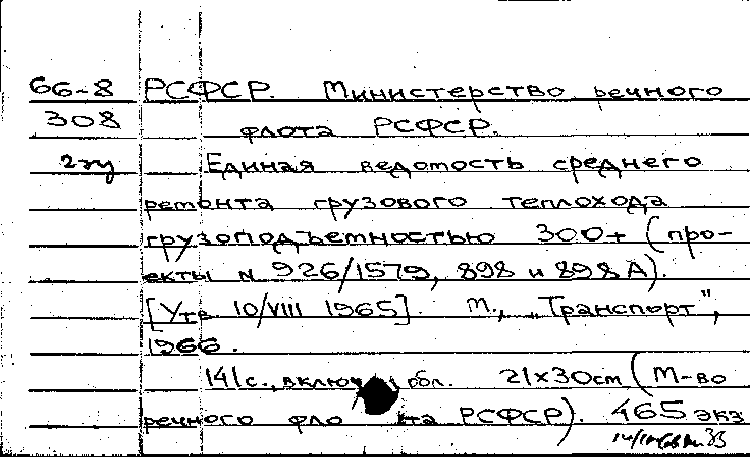 66-8 РСФСР. Министерство речного
308 флота РСФСР.
Единая ведомость среднего
ремонта грузового теплохода
грузоподъемностью 300т (про-
екты № 926/1579, 898 и 898А).
[Утв 10/VIII 1965]. М., „Транспорт",
1966.
141с., включ. обл. 21х30см (М-во
речного фло та РСФСР). 465 экз